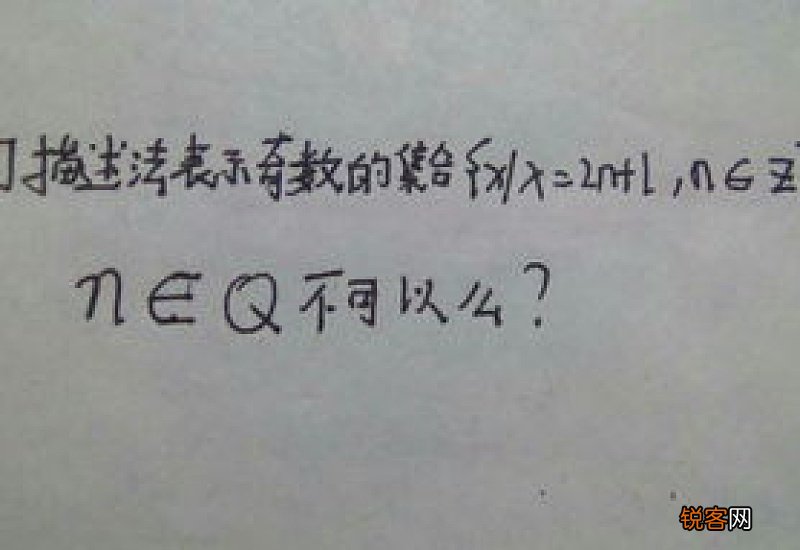 描述法表示奇数的集合{x|x=2n+1,n∈Z
n∈Q不可以么?
锐客网